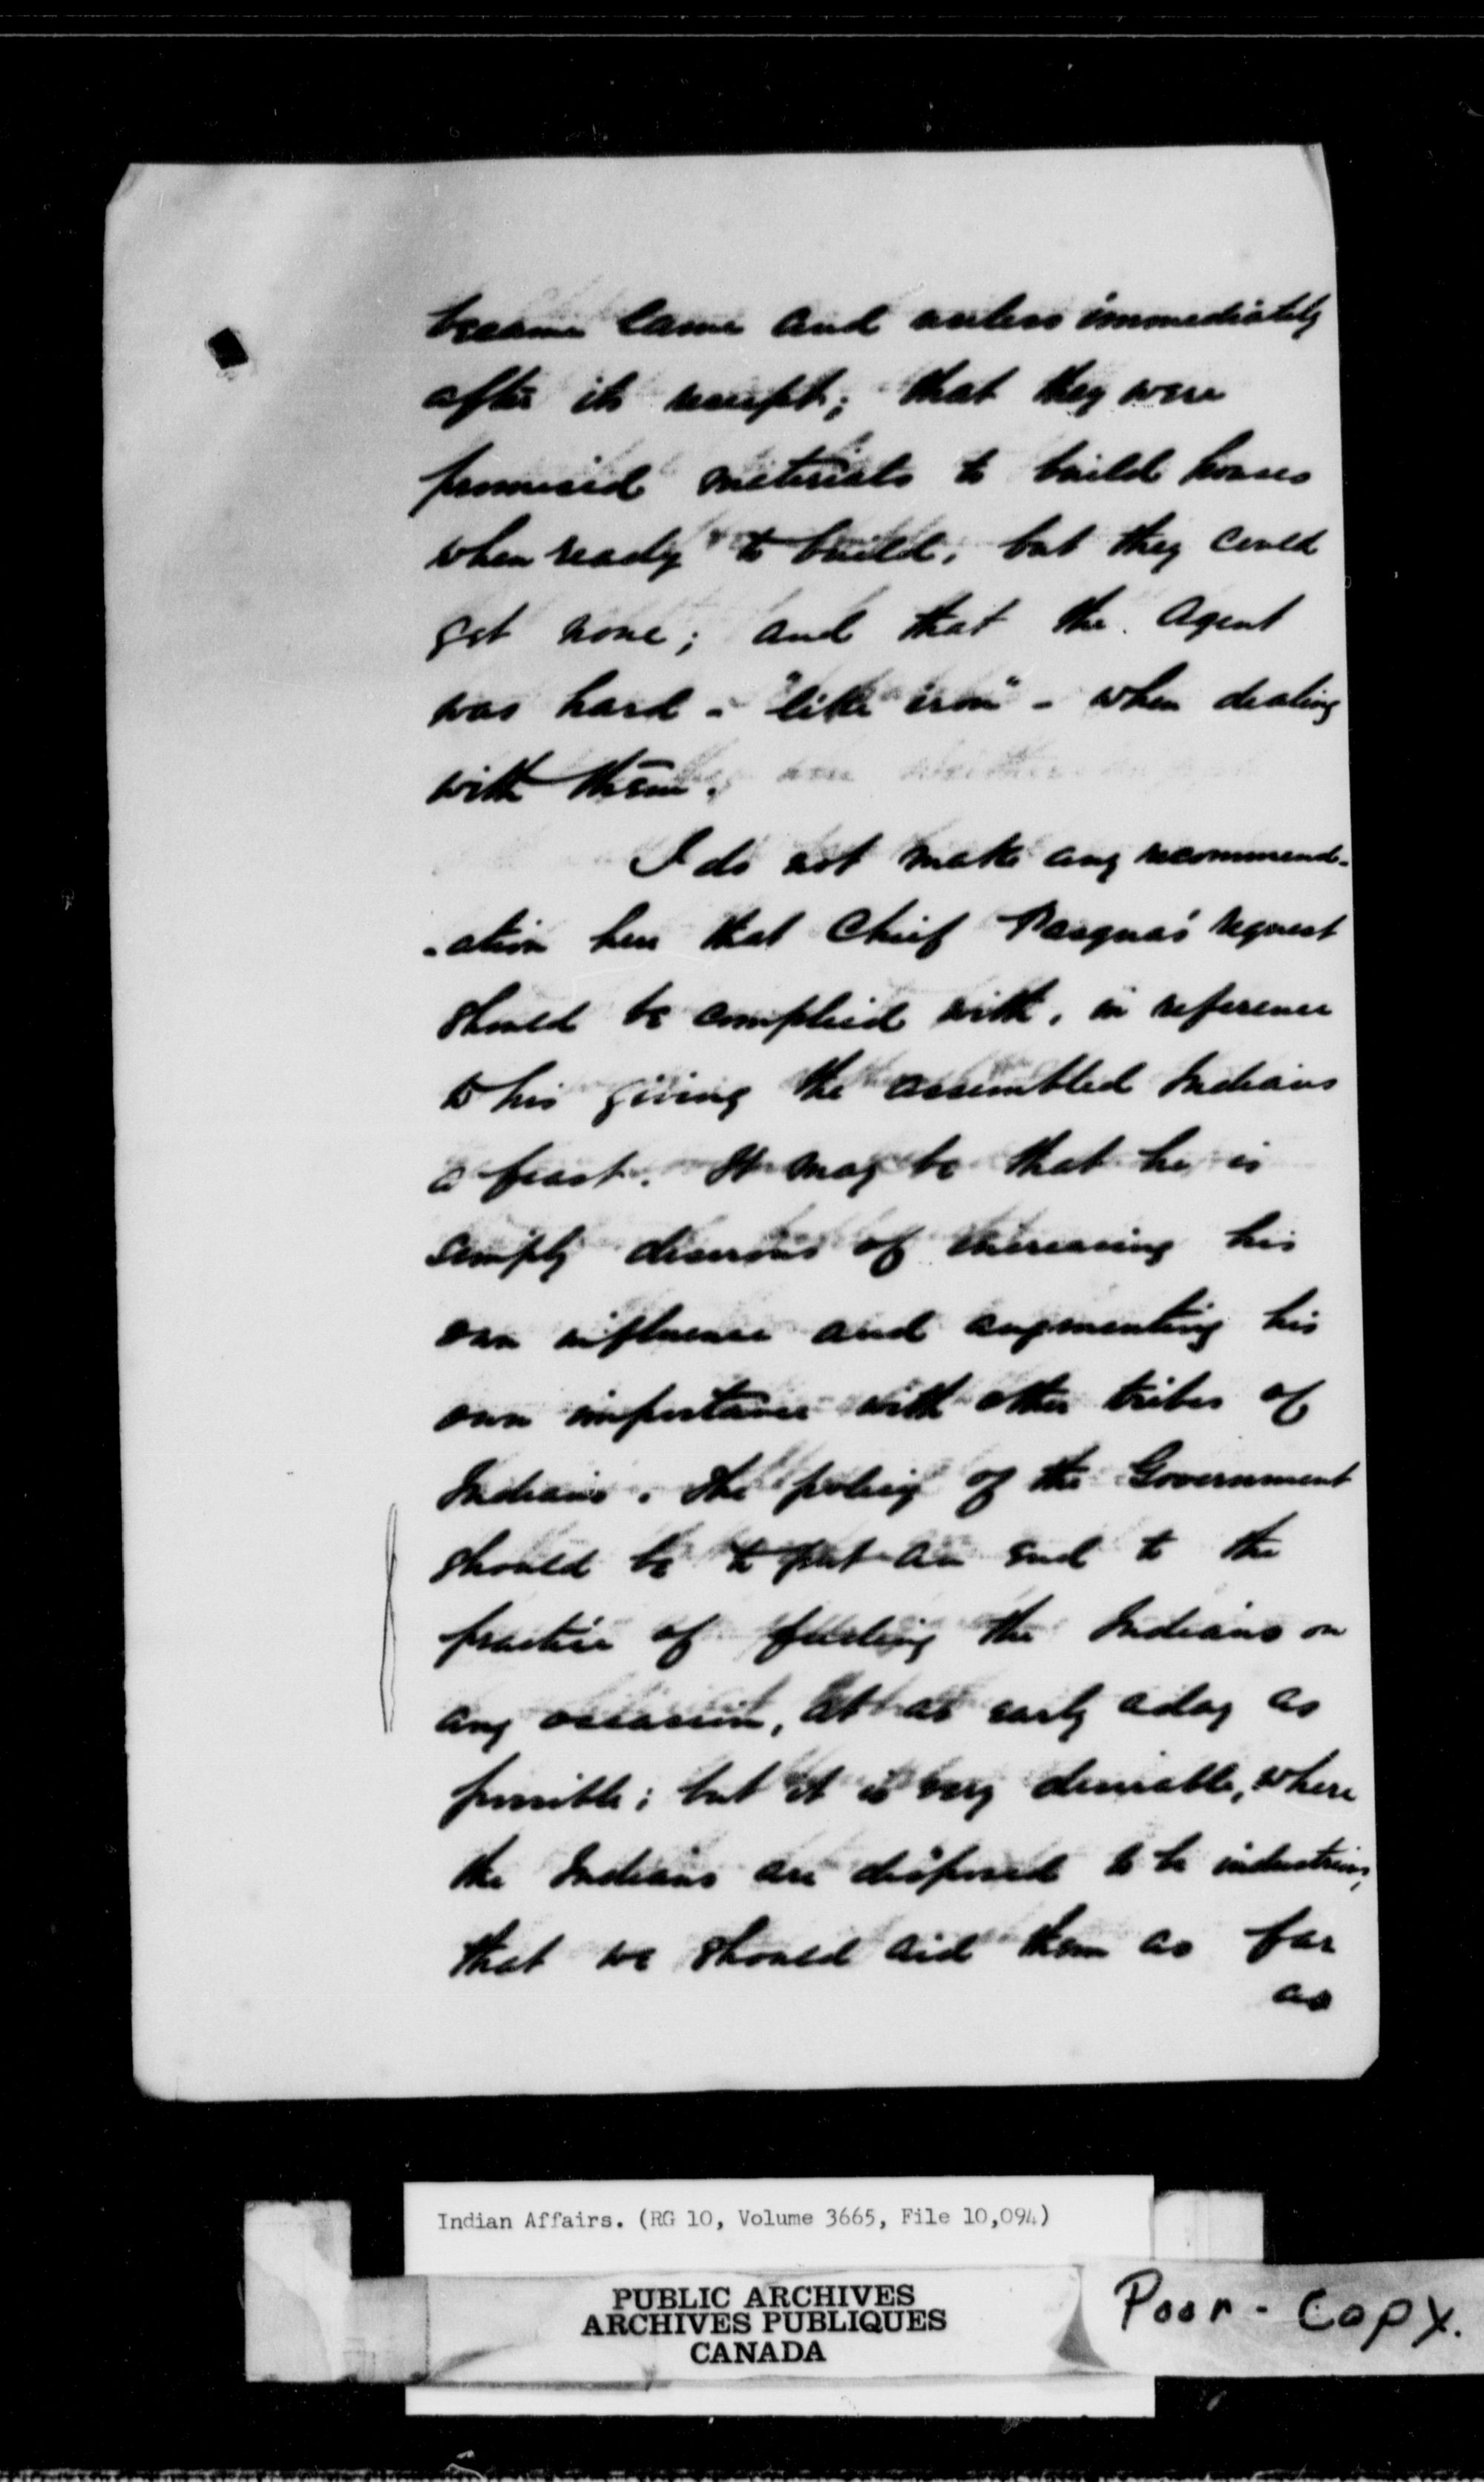 became lame and useless immediately
after its receipt; that they were
promised materials to build houses
when ready to build, but they could
get none; and that the Agent
was hard - "like iron" - when dealing
with them.
I do not make any recommend-
-ation here that Chief Pasquas' request
should be complied with, in reference
to his giving the assembled Indians
a feast. It may be that he is
simply desirous of increasing his
own influence and augmenting his
own importance with other tribes of
Indians. The policy of the Government
should be to put an end to the
practice of feeding the Indians on
any occasion, at as early a day as
possible; but it is very desirable, where
the Indians are disposed to be industrious,
that we should aid them as far
as
Indian Affairs. (RG 10, Volume 3665, File 10,094)
PUBLIC ARCHIVES
ARCHIVES PUBLIQUES
CANADA
Poor - Copy.